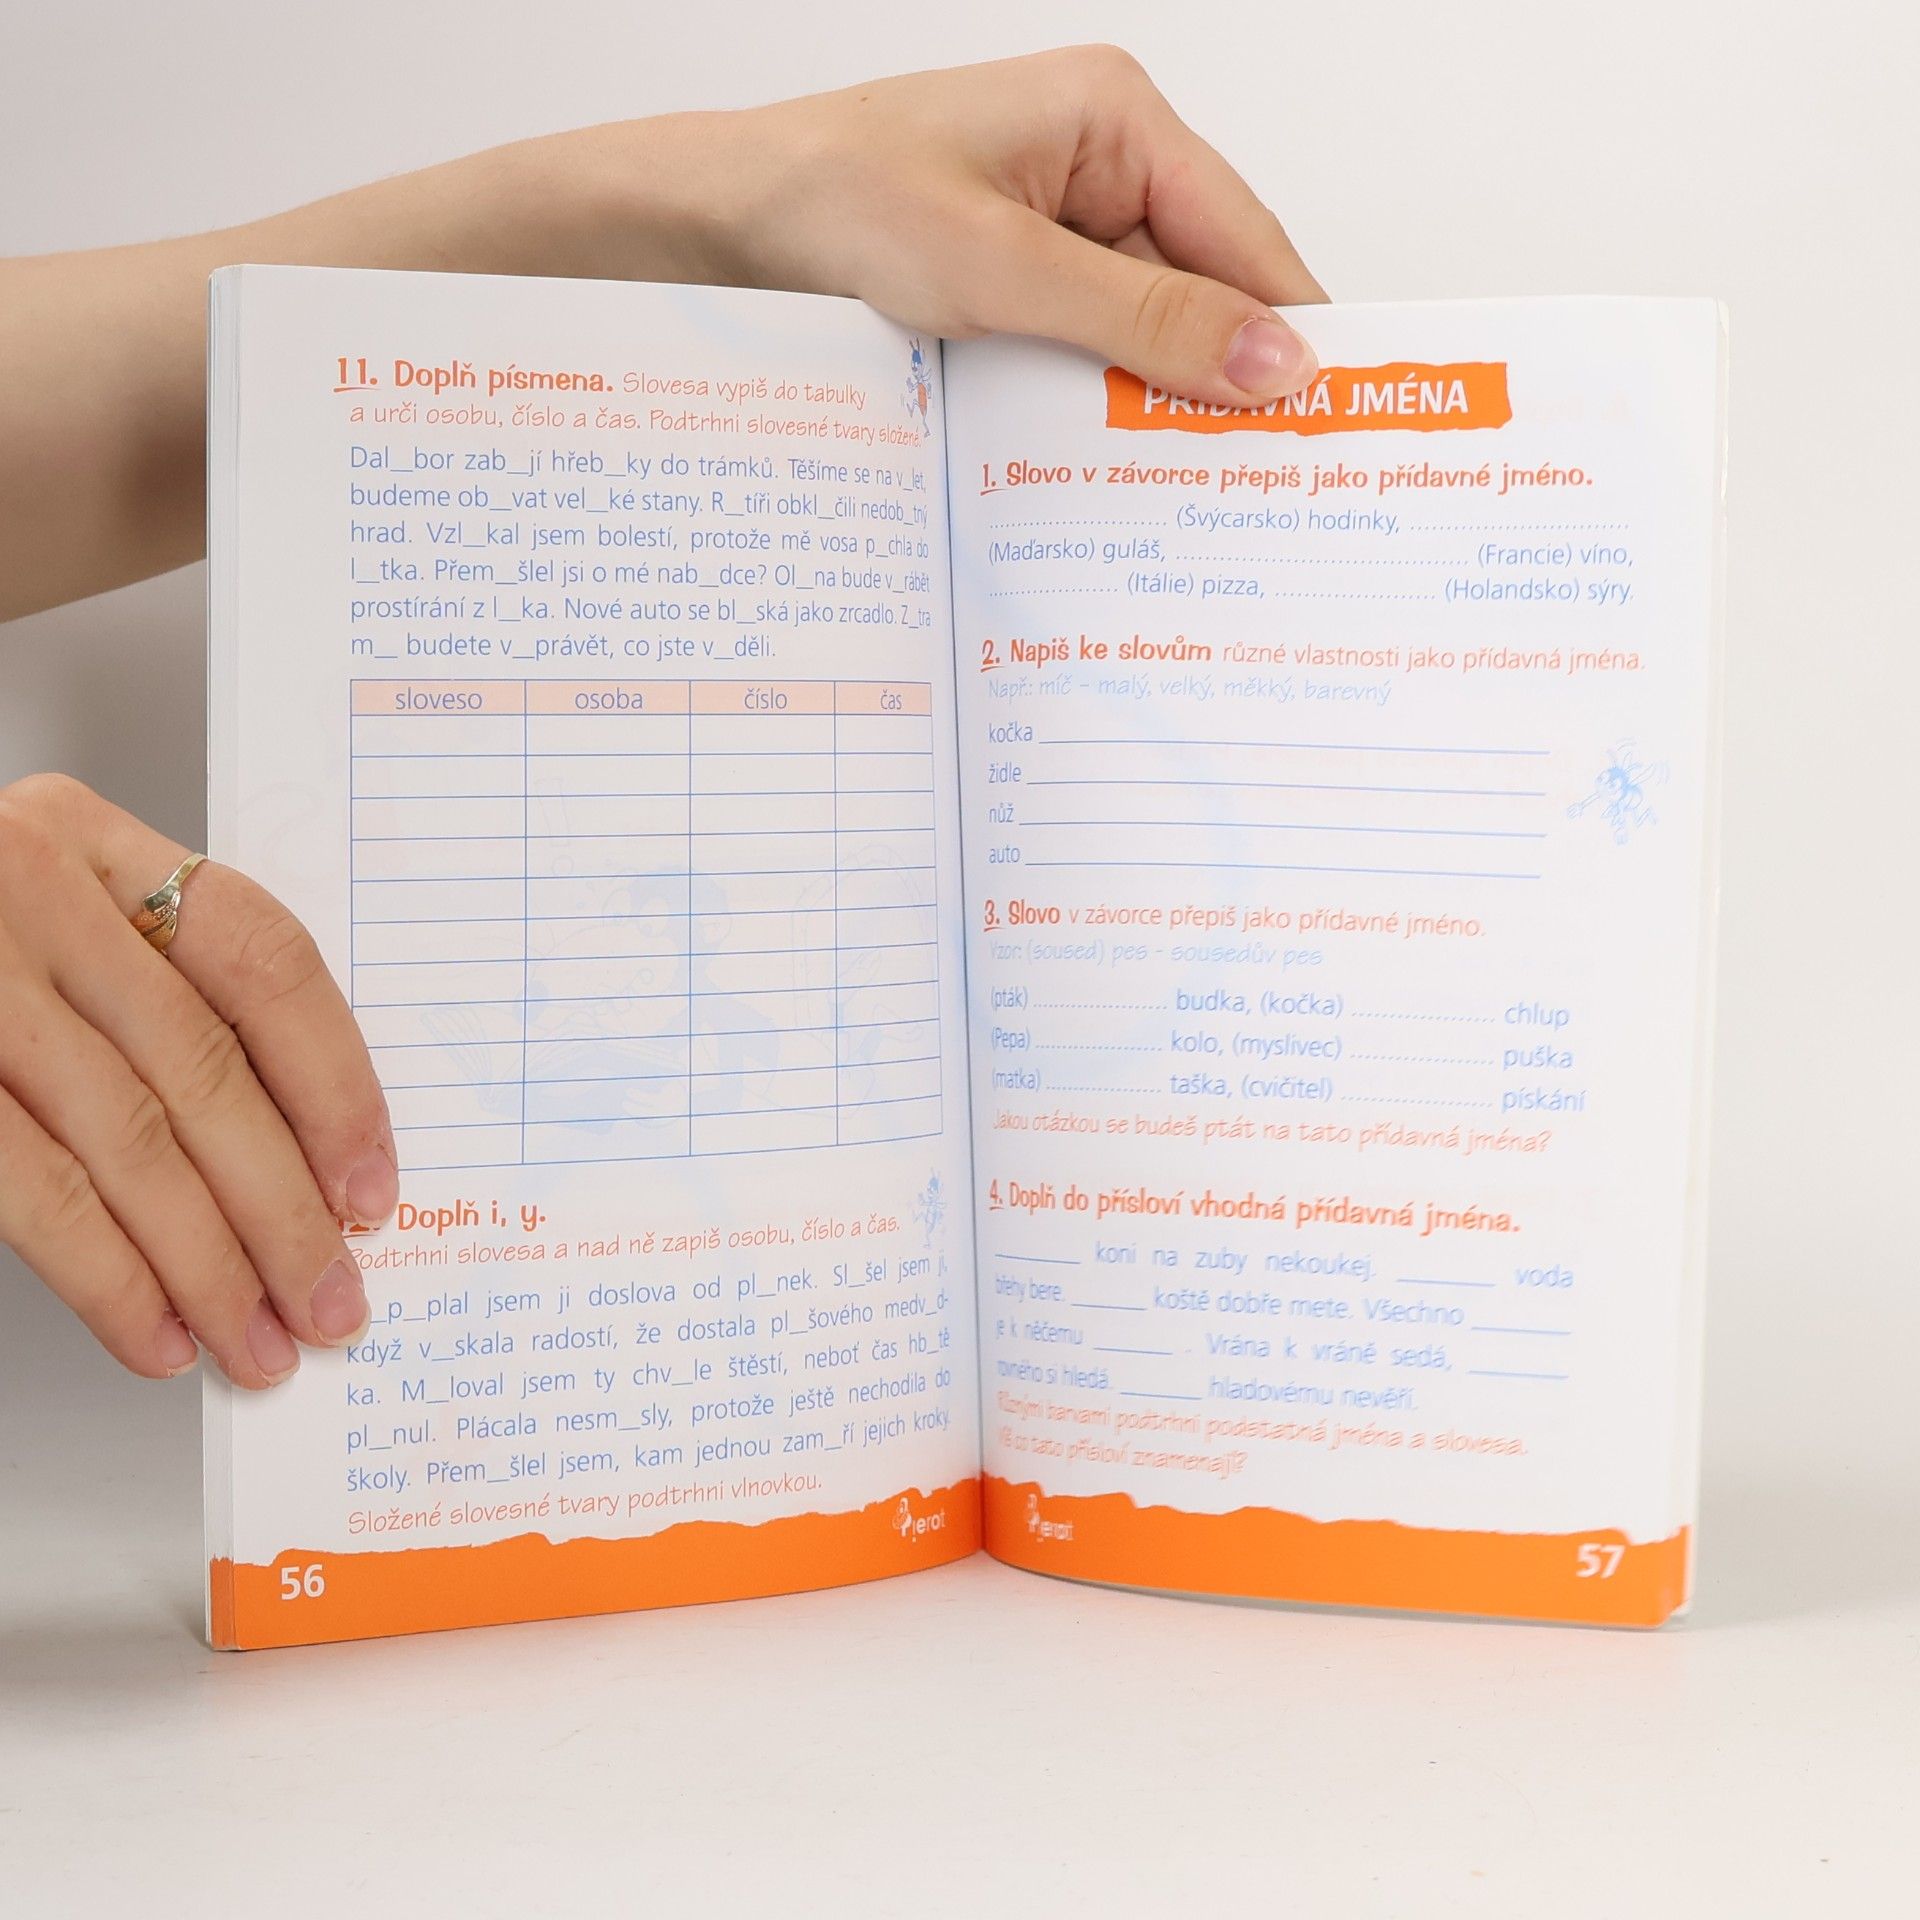 11. Doplň písmena. Slovesa vypiš do tabulky
a urči osobu, číslo a čas. Podtrhni slovesné tvary složené.
Dal__bor zab__jí hřeb__ky do trámků. Těšíme se na v_let,
budeme ob__vat vel__ké stany. R__tíři obkl__čili nedob_tný
hrad. Vzl__kal jsem bolestí, protože mě vosa p__chla do
l__tka. Přem__šlel jsi o mé nab__dce? Ol__na bude v_rábět
prostírání z l__ka. Nové auto se bl__ská jako zrcadlo. Z_tra
m__ budete v__právět, co jste v__děli.
sloveso osoba číslo čas
Doplň i, y.
Podtrhni slovesa a nad ně zapiš osobu, číslo a čas.
__p__plal jsem ji doslova od pl__nek. Sl__šel jsem ji,
když v__skala radostí, že dostala pl__šového medv_d-
ka. M__loval jsem ty chv__le štěstí, neboť čas hb__tě
pl__nul. Plácala nesm__sly, protože ještě nechodila do
školy. Přem__šlel jsem, kam jednou zam__ří jejich kroky.
Složené slovesné tvary podtrhni vlnovkou.
Pierot
56
JMÉNA
1. Slovo v závorce přepiš jako přídavné jméno.
........................... (Švýcarsko) hodinky, .................................
(Maďarsko) guláš, ............................................ (Francie) víno,
.................... (Itálie) pizza, ........................ (Holandsko) sýry.
2. Napiš ke slovům různé vlastnosti jako přídavná jména.
Např.: míč – malý, velký, měkký, barevný
kočka
židle
nůž
auto
3. Slovo v závorce přepiš jako přídavné jméno.
Vzor: (soused) pes – sousedův pes
(pták) .................... budka, (kočka) ..................... chlup
(Pepa) .................... kolo, (myslivec) ..................... puška
(matka) .................. taška, (cvičitel) ...................... pískání
Jakou otázkou se budeš ptát na tato přídavná jména?
4. Doplň do přísloví vhodná přídavná jména.
_______ koni na zuby nekoukej. ________ voda
břehy bere. ______ koště dobře mete. Všechno ________
je k něčemu _______ . Vrána k vráně sedá, ________
rovného si hledá. _______ hladovému nevěří.
Různými barvami podtrhni podstatná jména a slovesa.
Víš co tato přísloví znamenají?
Pierot
57